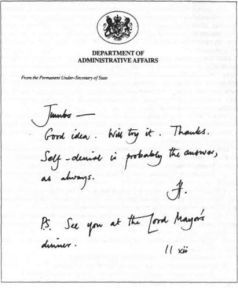 DEPARTMENT OF
ADMINISTRATIVE AFFAIRS
From the Permanent Under-Secretary of State
Jumbo —
Good idea. Will try it. Thanks.
Self-denial is probably the answer,
as always.
H.
PS. See you at the Lord Mayor's
dinner.
11 xii